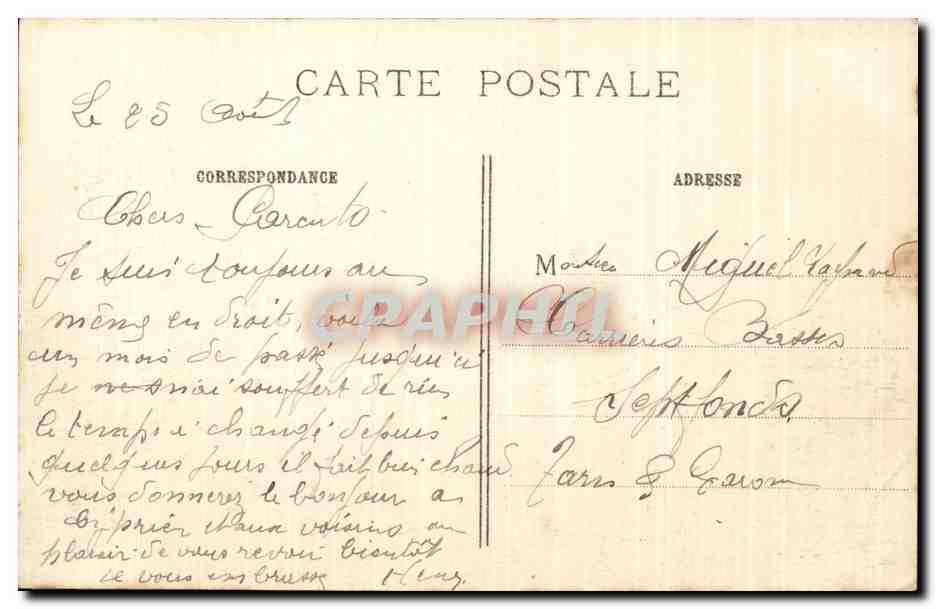 CARTE POSTALE
Le 25 Août
CORRESPONDANCE
Chers Parents
Je suis toujours au
même en droit, voila
un mois de passé jusqu'ici
je ne n'ai souffert de rien
le temps à changé depuis
quelques jours il fait bien chaud
vous donnerez le bonjour a
Cyprien et aux voisins au
plaisir de vous revoir bientôt
je vous embrasse Henry
ADRESSE
Monsieur Miguel
Carrières Basses
Septfonds
Tarn & Garonne
CRAPHIL